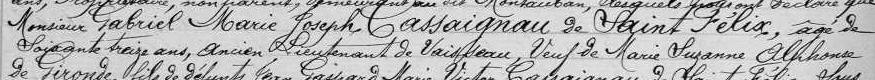 ans, Propriétaire, non parent, demeurant au dit Montauban, lesquels nous ont déclaré que
Monsieur Gabriel Marie Joseph Cassaignau de Saint Félix, âgé de
Soixante treize ans, ancien Lieutenant de Vaisseau, Veuf de Marie Suzanne Alphonse
de Gironde, fils de défunts Jean Gaspard Marie Victor Cassaignau de Saint Félix